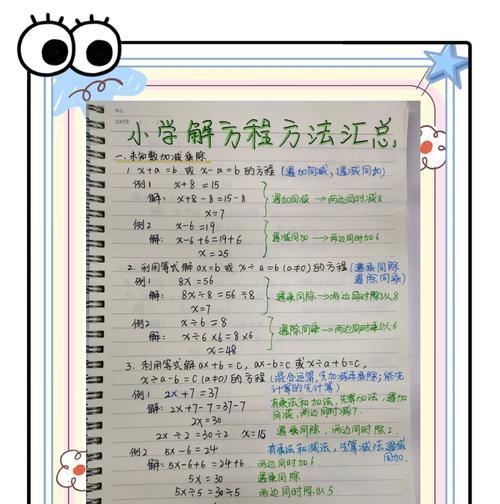 No.
DATE
小学解方程方法汇总
一、未知数加减乘除
1. x+a=b 或 x-a=b 的方程 (遇加同减，遇减同加)
例1 x+8=15
解: x+8-8=15-8 遇加同减 → 两边同时减8
x=7
例2 x-6=19
解: x-6+6=19+6 遇减同加 → 两边同时加6
x=25
2. 利用等式解 ax=b 或 x÷a=b (a≠0) 的方程 (遇乘同除
遇除同乘)
例1 8x=56
解: 8x÷8=56÷8 遇乘同除 → 两边同时除以8
x=7
例2 x÷6=8
解: x÷6×6=8×6 遇除同乘 → 两边同时乘以6
x=48
3. 利用等式解 ax+b=c, ax-b=c 或 x÷a+b=c,
x÷a-b=c (a≠0) 的方程 (混合运算,先加减再乘除;能先
计算的先计算)
例1 2x+7=37 有乘法和加法,先算加法,遇加
解: 2x+7-7=37-7 同减,两边同时减7.
2x=30
2x÷2=30÷2 x=15 遇乘同除,两边同时除2.
例2 5x-6=24 有乘法和减法,先算减法遇减
解: 5x-6+6=24+6 两边同时加6 同加.
5x=30 遇乘同除
5x÷5=30÷5 两边同时除以5